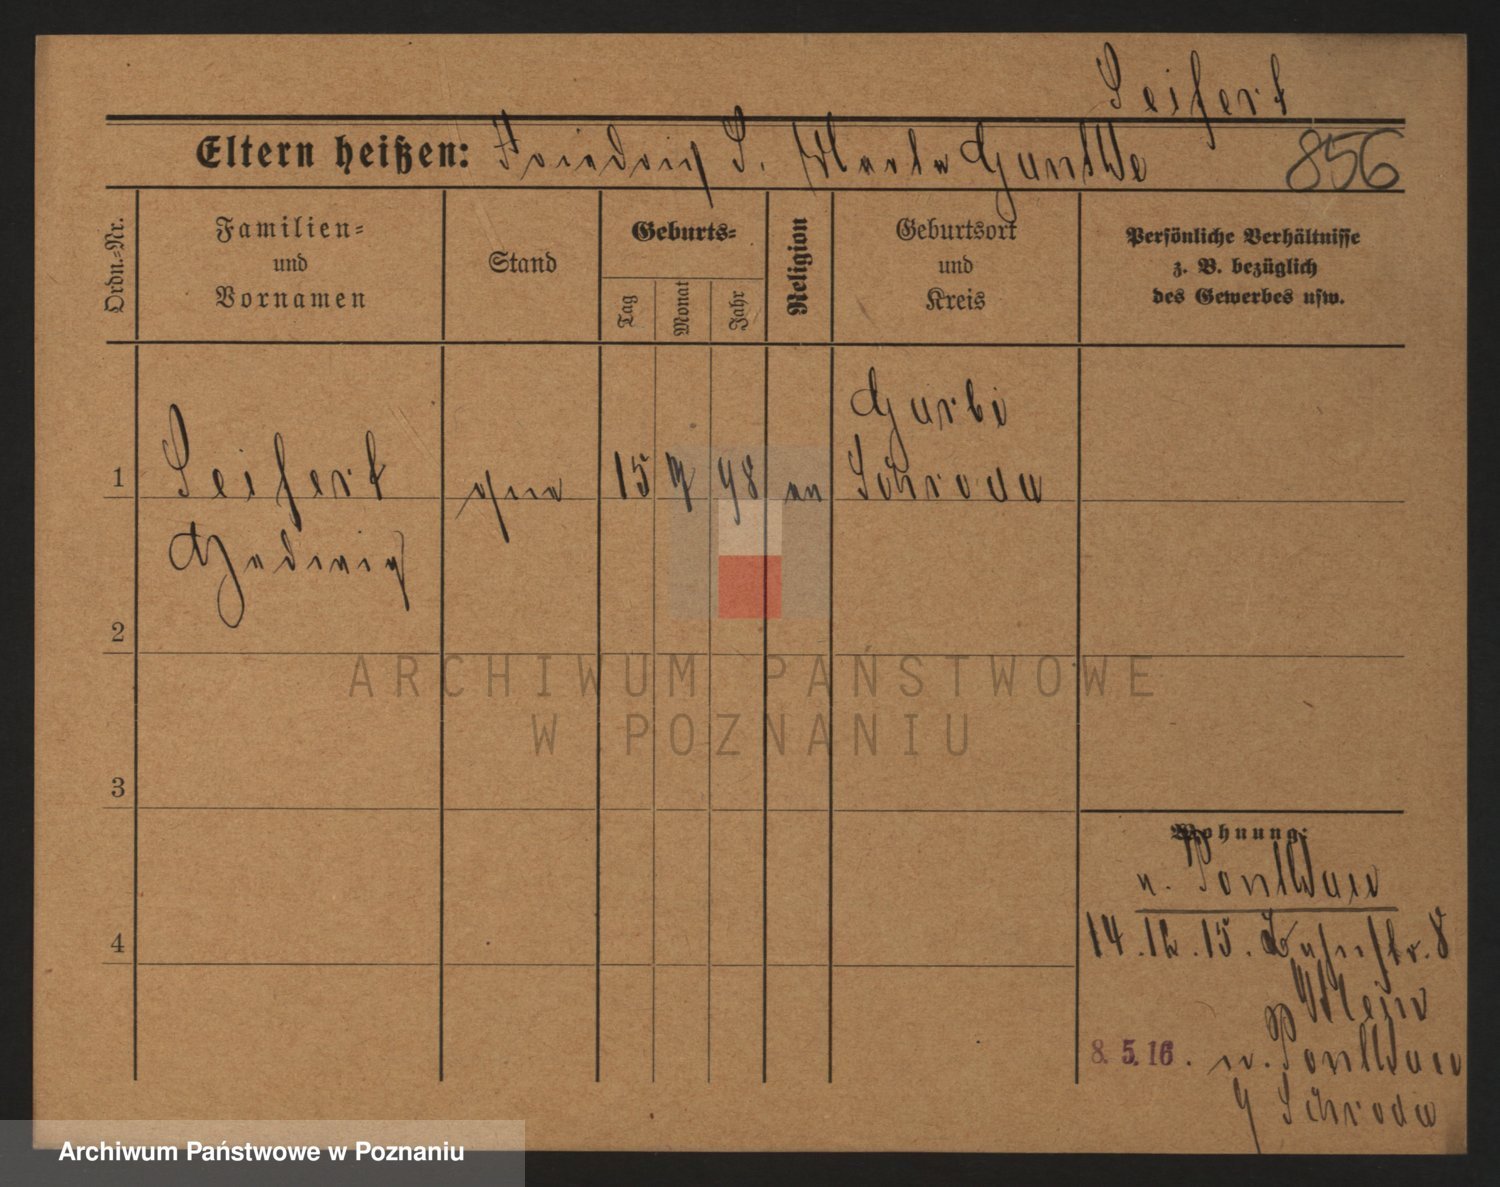 Seifert
Eltern heißen: Friedrich S. Gunthe
856
Ordn.-Nr.
Familien- und Vornamen
Stand
Geburts-
Tag
Monat
Jahr
Religion
Geburtsort und Kreis
Persönliche Verhältnisse z. B. bezüglich des Gewerbes usw.
1
Seifert
15 98
Schroda
Hedwig
2
3
4
ARCHIWUM PAŃSTWOWE
W POZNANIU
Wohnung:
n.
14.12.15. 8
8. 5. 16. n.
Schroda
Archiwum Państwowe w Poznaniu